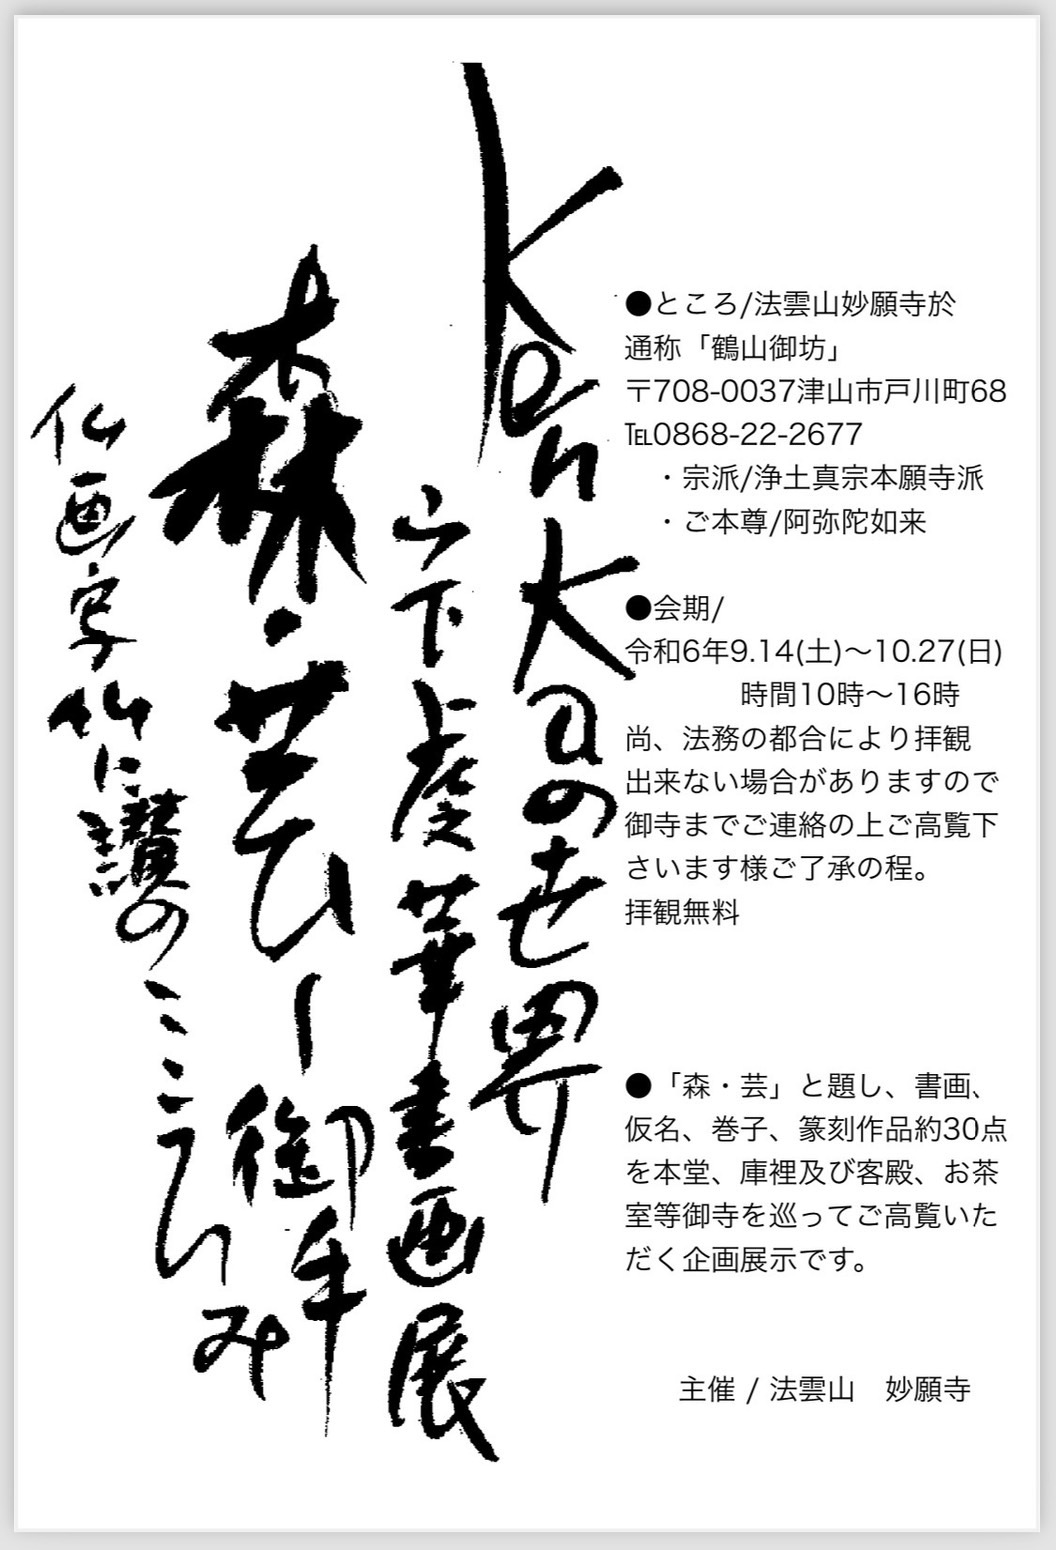 ●ところ/法雲山妙願寺於
通称「鶴山御坊」
〒708-0037津山市戸川町68
℡0868-22-2677
・宗派/浄土真宗本願寺派
・ご本尊/阿弥陀如来
●会期/
令和6年9.14(土)〜10.27(日)
時間10時〜16時
尚、法務の都合により拝観
出来ない場合がありますので
御寺までご連絡の上ご高覧下
さいます様ご了承の程。
拝観無料
●「森・芸」と題し、書画、
仮名、巻子、篆刻作品約30点
を本堂、庫裡及び客殿、お茶
室等御寺を巡ってご高覧いた
だく企画展示です。
主催 / 法雲山　妙願寺
Ken Kaの世界
山下虔華書画展
森・芸
仏画 に讃のこころみ